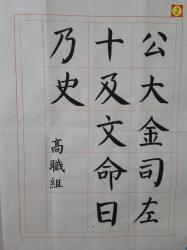 ②
公大金司左
十及文命日
乃史
高職組